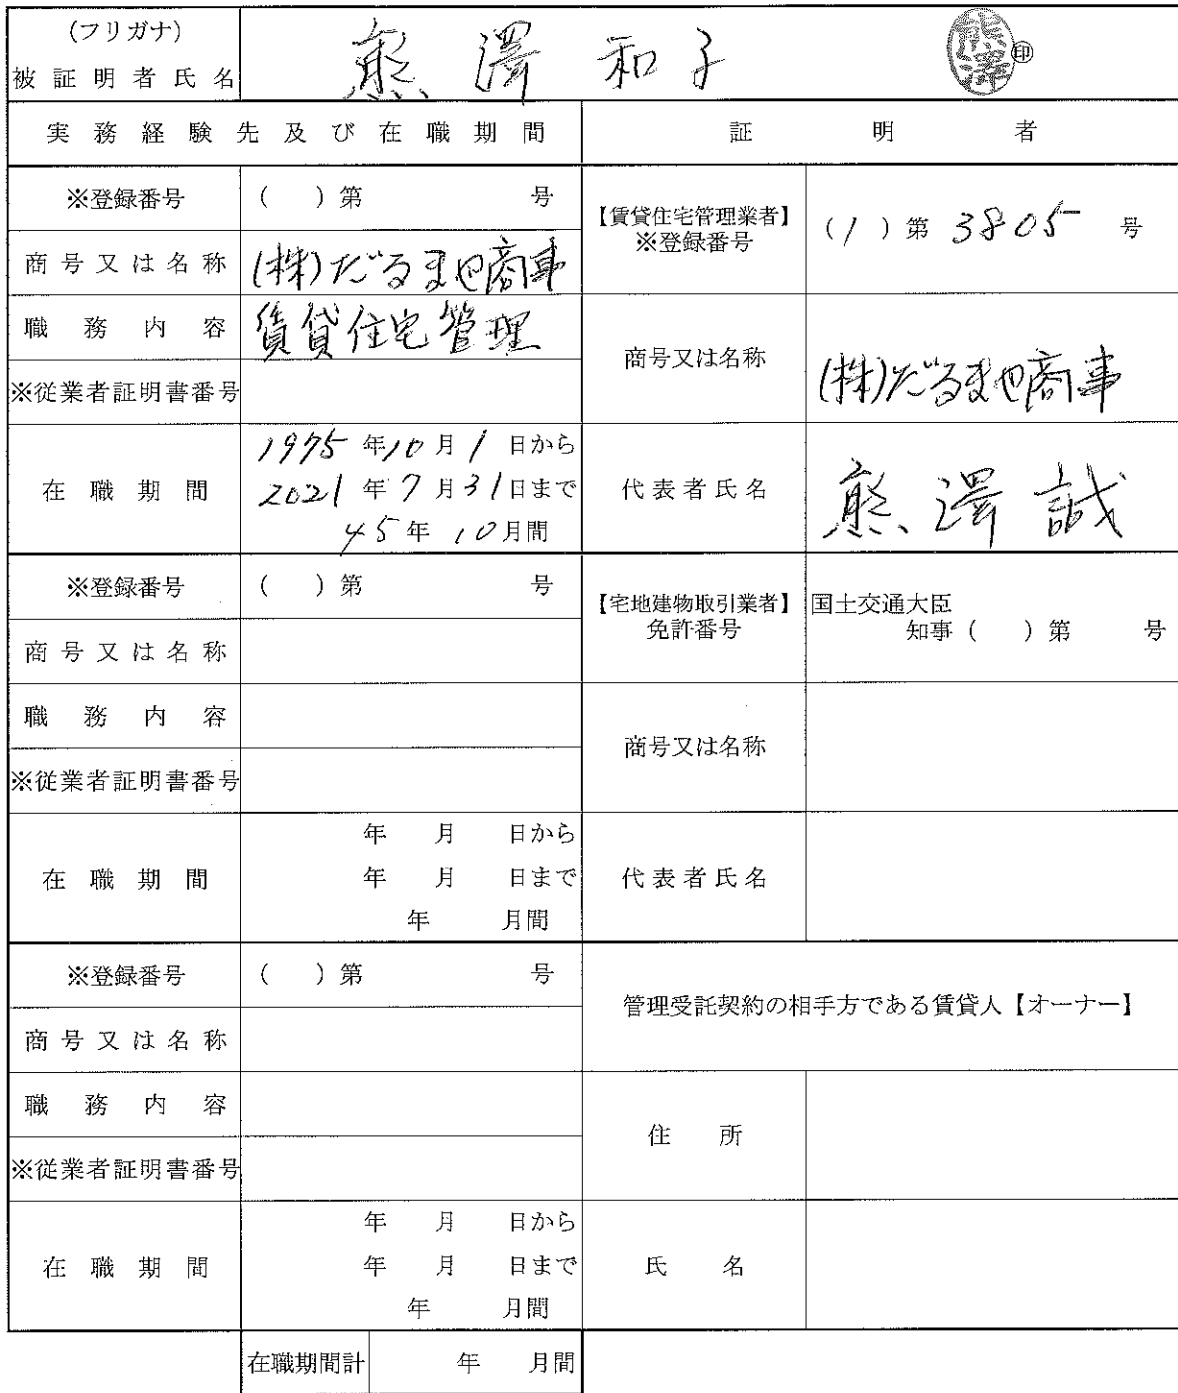 (フリガナ)
被証明者氏名 熊澤 和子 熊澤 ㊞
実務経験先及び在職期間 証明者
※登録番号 ( ) 第 号 【賃貸住宅管理業者】 ※登録番号 (1) 第 3805 号
商号又は名称 (株)だるまや商事
職務内容 賃貸住宅管理 商号又は名称 (株)だるまや商事
※従業者証明書番号
在職期間 1975年10月1日から
2021年7月31日まで 代表者氏名 熊澤 誠
45年10月間
※登録番号 ( ) 第 号 【宅地建物取引業者】 免許番号 国土交通大臣
知事 ( ) 第 号
商号又は名称
職務内容 商号又は名称
※従業者証明書番号
年 月 日から
在職期間 年 月 日まで 代表者氏名
年 月間
※登録番号 ( ) 第 号 管理受託契約の相手方である賃貸人【オーナー】
商号又は名称
職務内容 住所
※従業者証明書番号
年 月 日から
在職期間 年 月 日まで 氏名
年 月間
在職期間計 年 月間